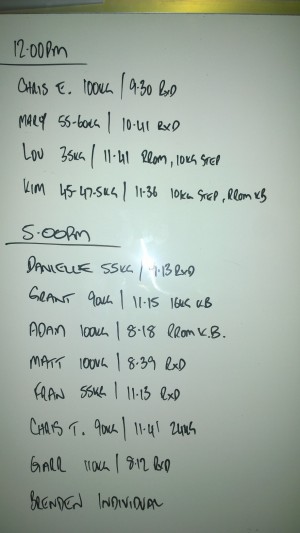 12.00PM
CHRIS E. 100KG / 9.30 RXD
MARY 55-60KG / 10.41 RXD
LOU 35KG / 11.41 RROM, 10KG STEP
KIM 45-47.5KG / 11.36 10KG STEP, RROM KB
5.00PM
DANIELLE 55KG / 9.13 RXD
GRANT 90KG / 11.15 16KG KB
ADAM 100KG / 8.18 RROM K.B.
MATT 100KG / 8.39 RXD
FRAN 55KG / 11.13 RXD
CHRIS T. 90KG / 11.41 24KG
GARR 110KG / 8.12 RXD
BRENDEN INDIVIDUAL